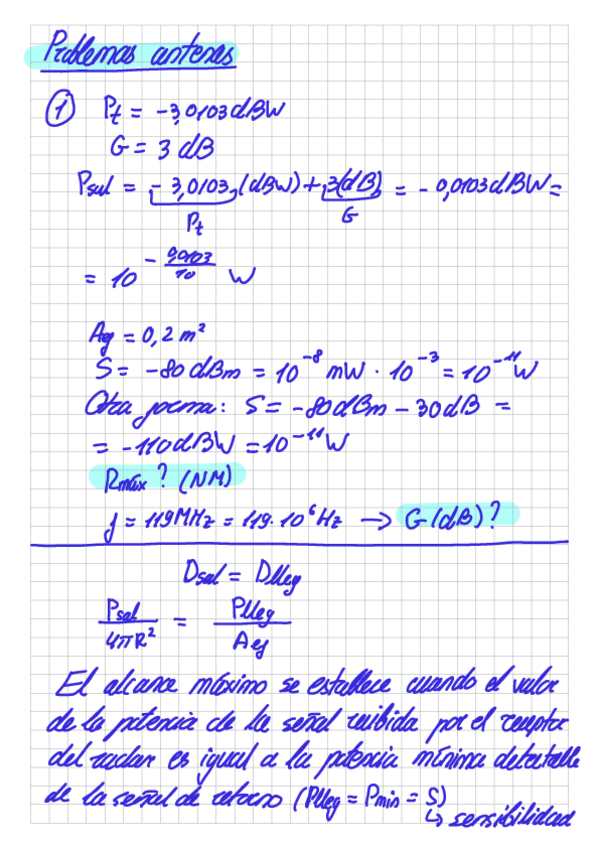 Problemas antenas
① Pt = -3,0103 dBW
G = 3 dB
Psal = -3,0103 (dBW) + 3(dB) = -0,0103 dBW =
Pt G
= 10^(-0,0103/10) W
Aef = 0,2 m²
S = -80 dBm = 10⁻⁸ mW · 10⁻³ = 10⁻¹¹ W
Otra forma: S = -80 dBm - 30 dB =
= -110 dBW = 10⁻¹¹ W
Rmáx? (NM)
f = 119 MHz = 119·10⁶ Hz → G(dB)?
Dsal = Dlleg
Psal/4πR² = Plleg/Aef
El alcance máximo se establece cuando el valor
de la potencia de la señal recibida por el receptor
del radar es igual a la potencia mínima detectable
de la señal de retorno (Plleg = Pmin = S)
↳ sensibilidad